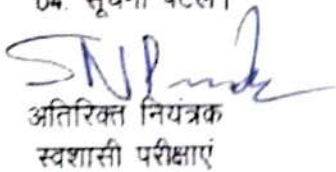 04. सूचना पटल।
अतिरिक्त नियंत्रक
स्वशासी परीक्षाएं